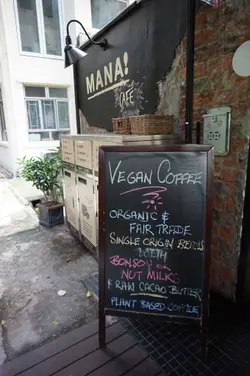 MANA!
CAFE
VEGAN COFFEE
ORGANIC &
FAIR TRADE
SINGLE ORIGIN BEANS
WITH
BONSOY OR
NUT MILKS
& RAW CACAO BUTTER
PLANT BASED COFFEE